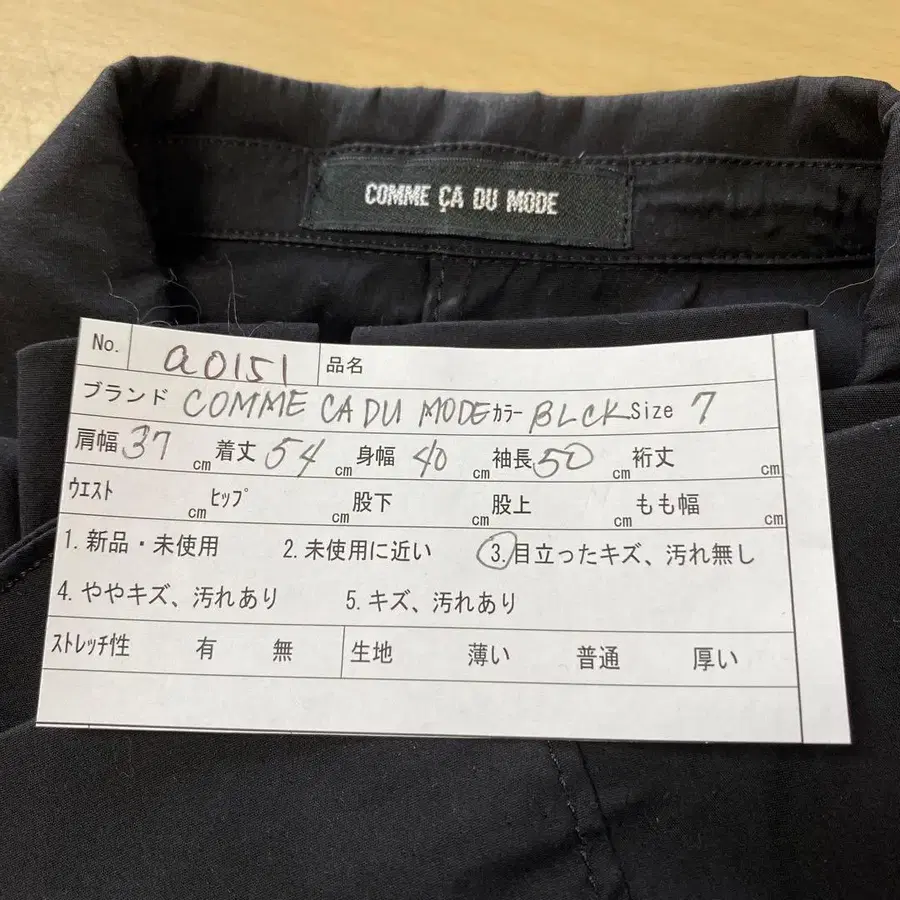 COMME ÇA DU MODE
No. a0151 品名
ブランド COMME CA DU MODE カラー BLCK Size 7
肩幅 37 cm 着丈 54 cm 身幅 40 cm 袖長 50 cm 裄丈 cm
ウエスト cm ヒップ cm 股下 cm 股上 cm もも幅 cm
1. 新品・未使用 2. 未使用に近い 3. 目立ったキズ、汚れ無し
4. ややキズ、汚れあり 5. キズ、汚れあり
ストレッチ性 有 無 生地 薄い 普通 厚い